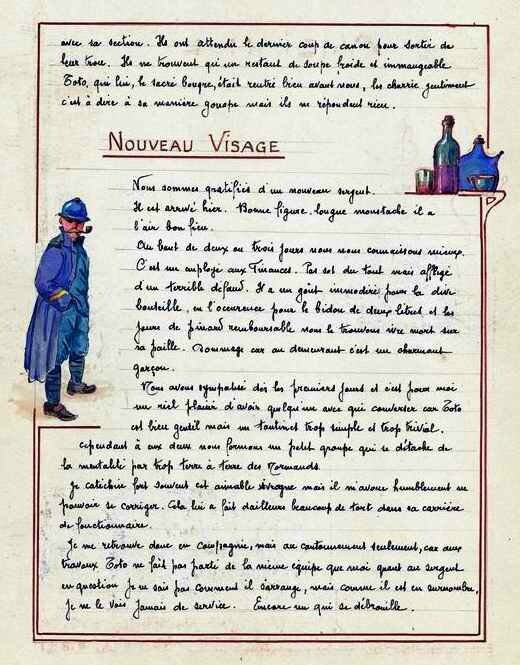 avec sa section. Ils ont attendu le dernier coup de canon pour sortir de
leur trou. Ils ne trouvent qu'un restant de soupe froide et immangeable
Toto, qui lui, le sacré bougre, était rentré bien avant nous, les charrie gentiment
c'est à dire à sa manière gouape mais ils ne répondent rien.
NOUVEAU VISAGE
Nous sommes gratifiés d'un nouveau sergent.
Il est arrivé hier. Bonne figure, longue moustache il a
l'air bon fieu.
Au bout de deux ou trois jours nous nous connaissons mieux.
C'est un employé aux Finances. Pas sot du tout mais affligé
d'un terrible défaut. Il a un goût immodéré pour la dive
bouteille, en l'occurence pour le bidon de deux litres et les
jours de pinard remboursable nous le trouvons ivre mort sur
sa paille. Dommage car au demeurant c'est un charmant
garçon.
Nous avons sympatisé dès les premiers jours et c'est pour moi
un réel plaisir d'avoir quelqu'un avec qui converser car Toto
est bien gentil mais un tantinet trop simple et trop trivial.
cependant à eux deux nous formons un petit groupe qui se détache de
la mentalité par trop terre à terre des Normands.
Je catéchise fort souvent cet aimable ivrogne mais il m'avoue humblement ne
pouvoir se corriger. Cela lui a fait d'ailleurs beaucoup de tort dans sa carrière
de fonctionnaire.
Je me retrouve donc en compagnie, mais au cantonnement seulement, car aux
travaux Toto ne fait pas parti de la même équipe que moi quant au sergent
en question je ne sais pas comment il s'arrange, mais comme il est en surnombre,
je ne le vois jamais de service. Encore un qui se débrouille.